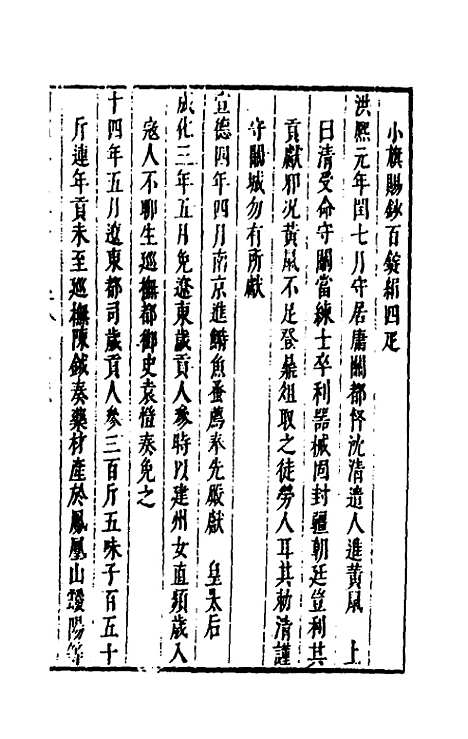 小旗賜鈔百錠絹四疋
洪熙元年閏七月守居庸關都督沈清遣人進黃鼠　上
曰清受命守關當練士卒利器械固封疆朝廷豈利其
貢獻邪况黃鼠不足登鼎俎取之徒勞人耳其勑清謹
守關城勿有所獻
宣德四年四月南京進鰣魚蚤薦奉先殿獻　皇太后
成化三年五月免遼東歲貢人參時以建州女直頻歲入
寇人不聊生巡撫都御史袁愷奏免之
十四年五月遼東都司歲貢人參三百斤五味子百五十
斤連年貢未至巡撫陳鉞奏藥材產於鳳凰山靉陽等